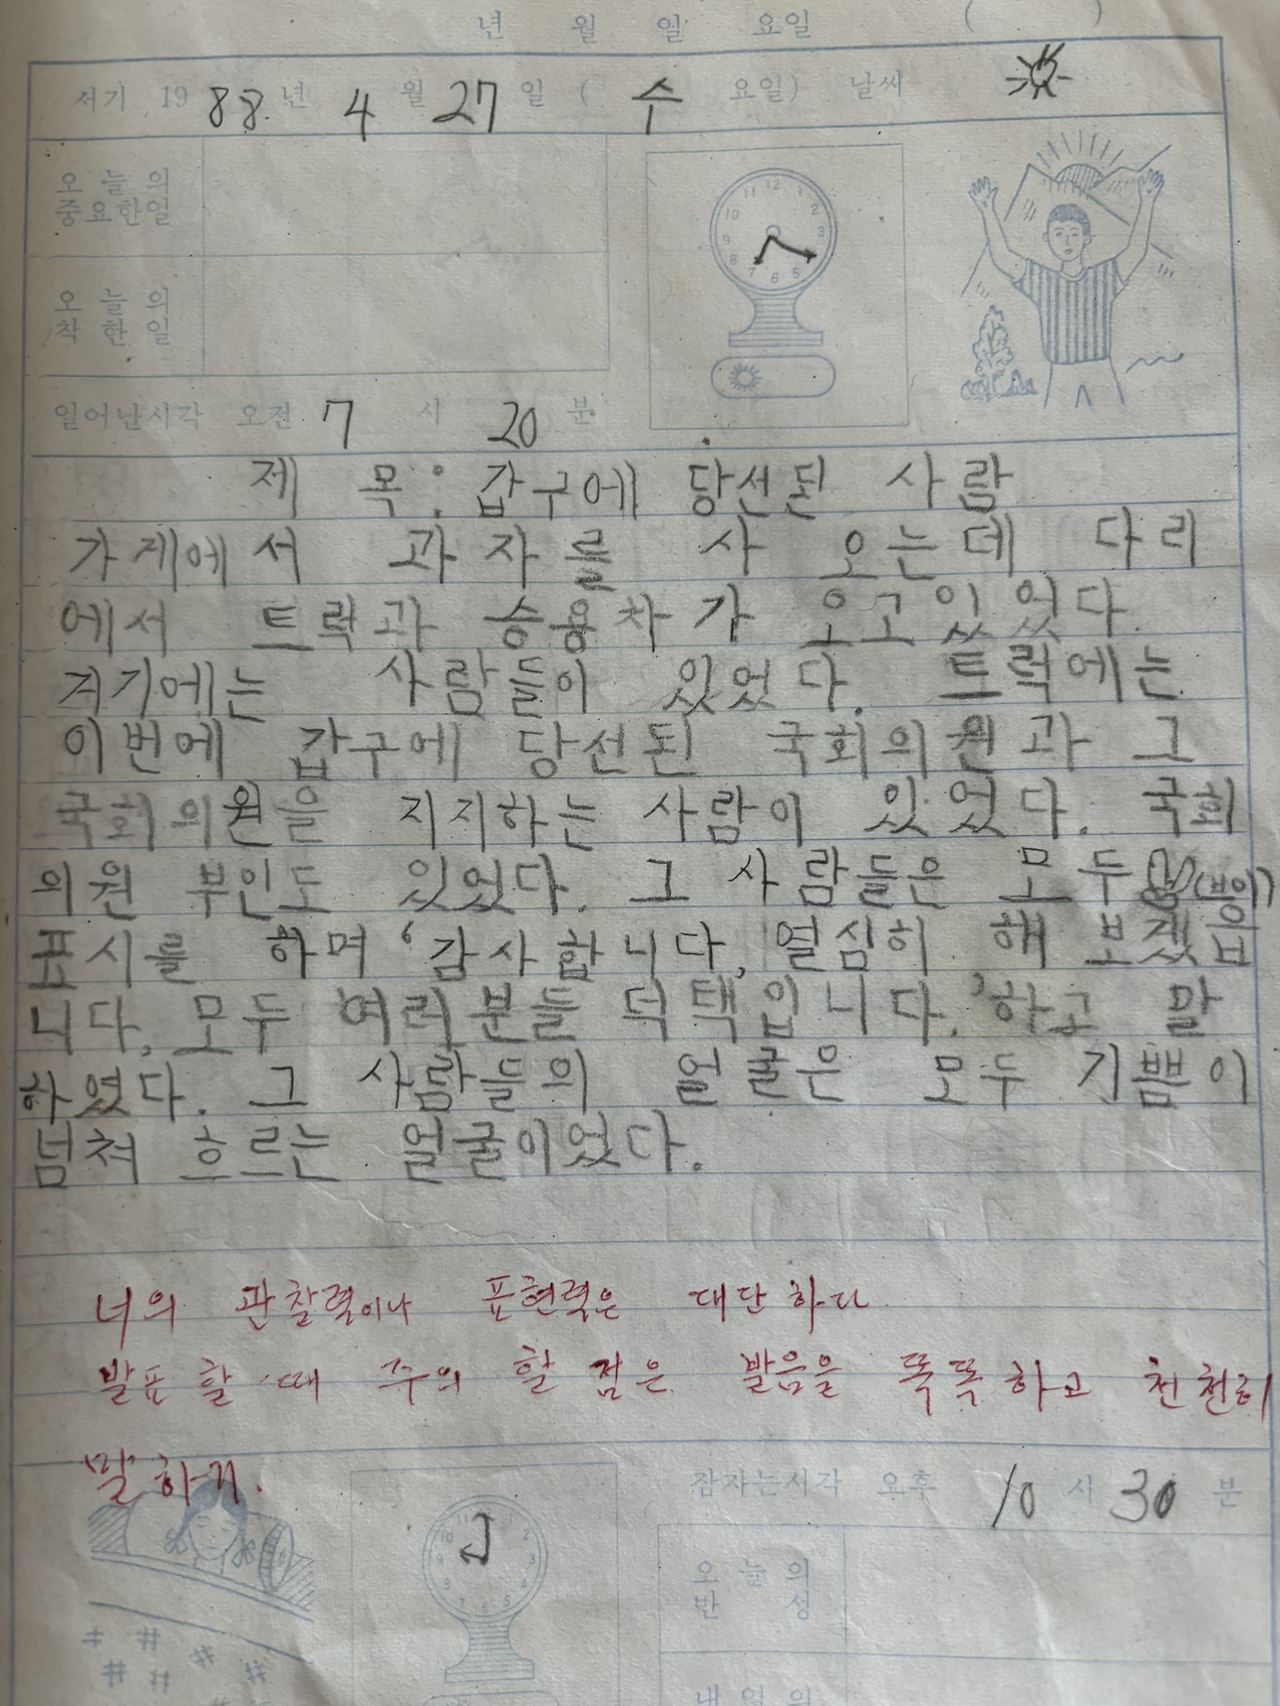 년 월 일 요일 ( )
서기 1988년 4월 27일 (수요일) 날씨
오늘의
중요한일
오늘의
착한일
일어난시각 오전 7시 20분
제 목: 갑구에 당선된 사람
가게에서 과자를 사 오는데 다리
에서 트럭과 승용차가 오고있었다.
거기에는 사람들이 있었다. 트럭에는
이번에 갑구에 당선된 국회의원과 그
국회의원을 지지하는 사람이 있었다. 국회
의원 부인도 있었다. 그 사람들은 모두 (브이)
표시를 하며 ‘감사합니다, 열심히 해 보겠읍
니다, 모두 여러분들 덕택입니다.’하고 말
하였다. 그 사람들의 얼굴은 모두 기쁨이
넘쳐 흐르는 얼굴이었다.
너의 관찰력이나 표현력은 대단하다
발표 할 때 주의 할 점은 발음을 똑똑하고 천천히
말하기.
잠자는시각 오후 10시 30분
오늘의
반성
내일의